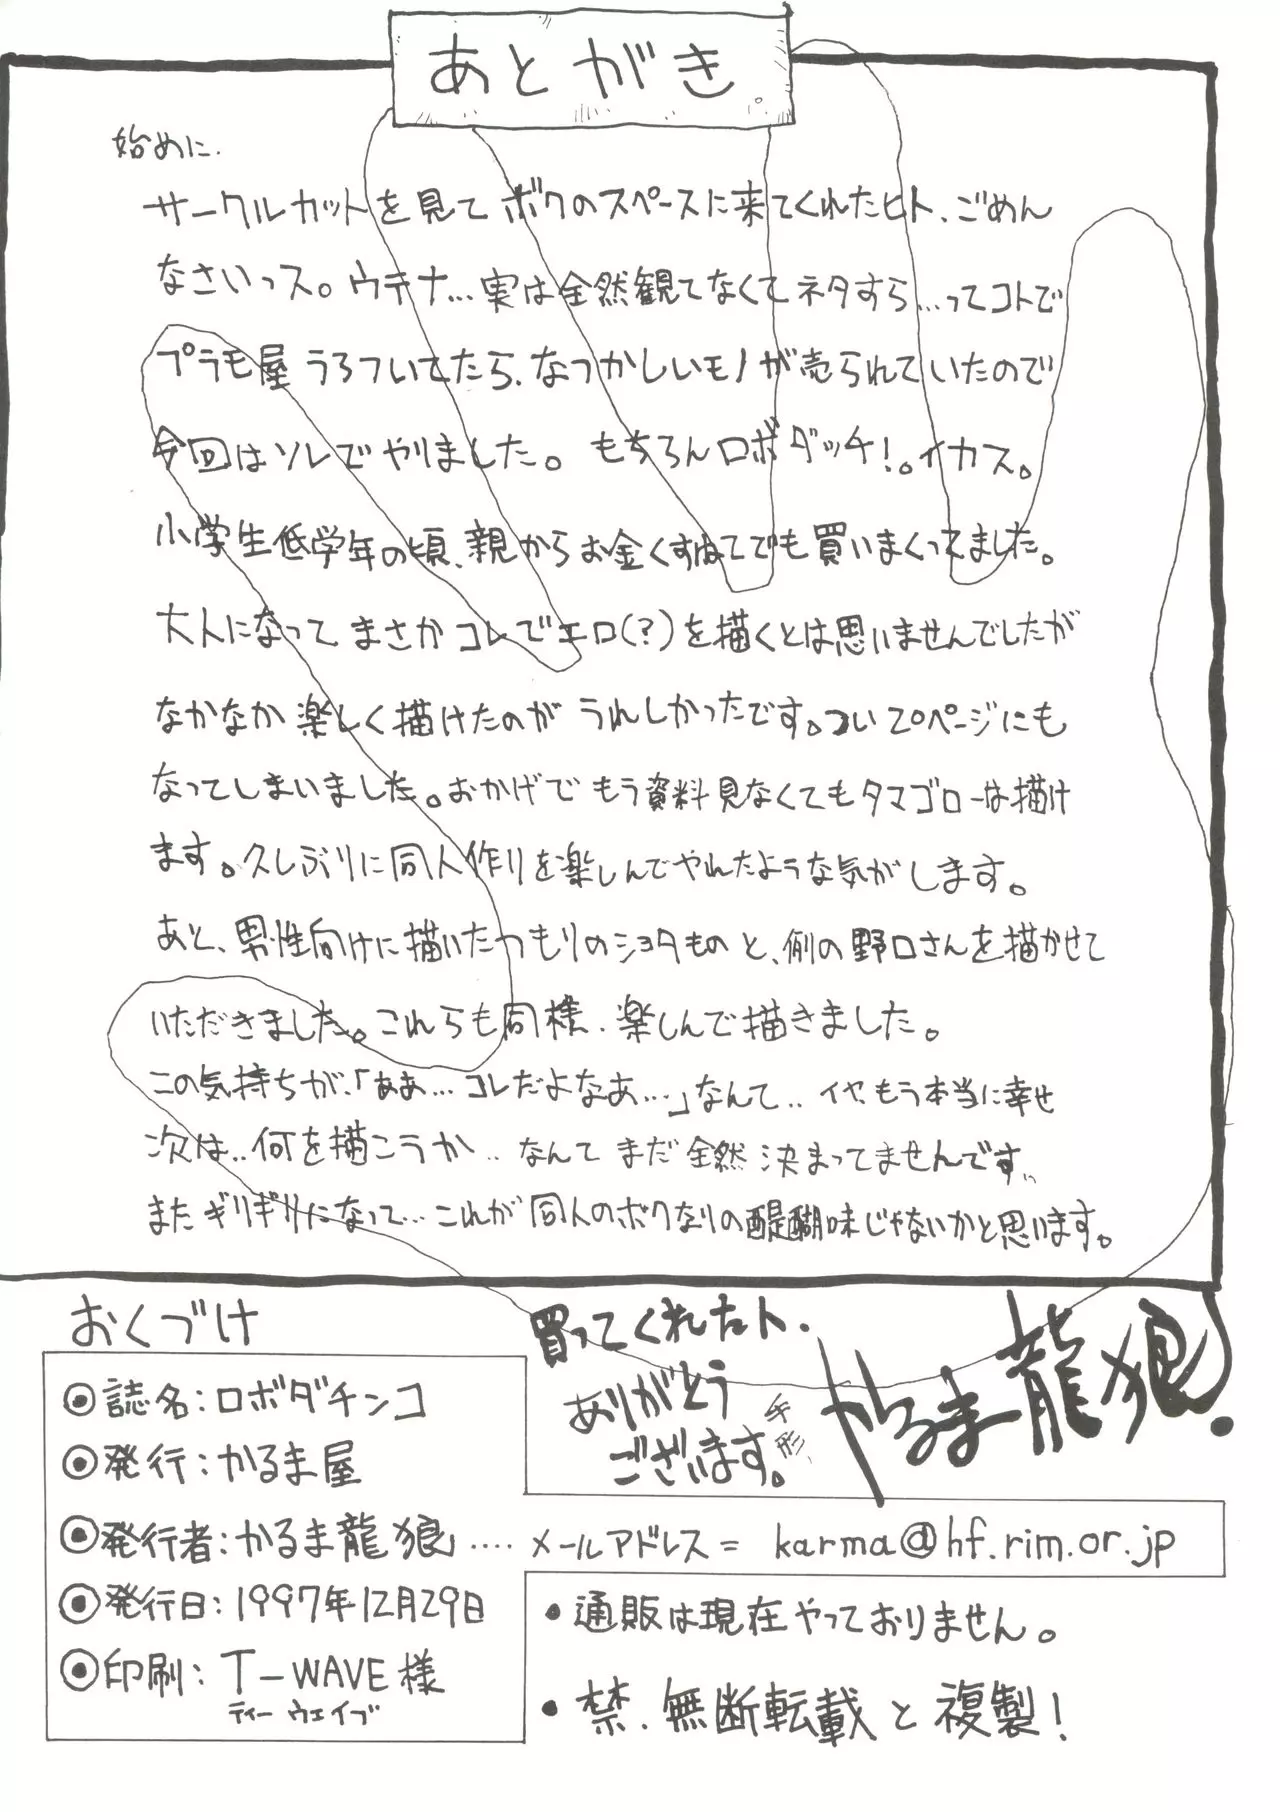 あとがき。
始めに.
サークルカットを見て ボクのスペースに来てくれたヒト、ごめん
なさいっス。ウテナ…実は全然観てなくて ネタすら…ってコトで
プラモ屋 うろついてたら、なつかしいモノが売られていたので
今回はソレでやりました。 もちろんロボダッチ!。イカス。
小学生低学年の頃、親からお金くすねてでも買いまくってました。
大人になって まさか コレでエロ(?)を描くとは思いませんでしたが
なかなか楽しく描けたのが うれしかったです。つい20ページにも
なってしまいました。おかげで もう資料見なくてもタマゴローは描け
ます。久しぶりに同人作りを楽しんでやれたような気がします。
あと、男性向けに描いたつもりのショタものと、例の野口さんを描かせて
いただきました。これらも同様、楽しんで描きました。
この気持ちが、「ああ…コレだよなあ…」なんて‥ イヤ、もう本当に幸せ
次は‥何を描こうか‥なんて まだ全然決まってませんです‥
また ギリギリになって…これが同人のボクなりの醍醐味じゃないかと思います。
おくづけ
◎誌名:ロボダチンコ
◎発行:かるま屋
◎発行者:かるま龍狼…. メールアドレス= karma@hf.rim.or.jp
◎発行日:1997年12月29日
◎印刷:T-WAVE様
ティーウェイブ
買ってくれたト.
ありがとう
ございます。
手形.
かるま龍狼.
・通販は現在やっておりません。
・禁.無断転載と複製!